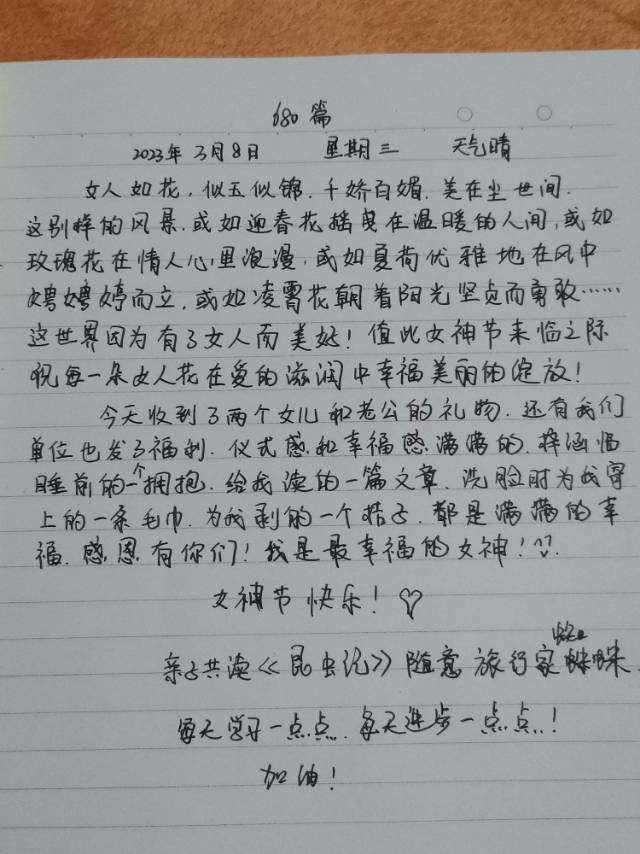 680篇
2023年3月8日 星期三 天气晴
女人如花,似玉似锦,千娇百媚,美在尘世间.
这别样的风景,或如迎春花摇曳在温暖的人间,或如
玫瑰花在情人心里浪漫,或如夏荷优雅地在风中
娉娉婷而立,或如凌霄花朝着阳光坚贞而勇敢……
这世界因为有了女人而美好!值此女神节来临之际
祝每一朵女人花在爱的滋润中幸福美丽的绽放!
今天收到了两个女儿和老公的礼物.还有我们
单位也发了福利.仪式感和幸福感满满的.梓涵临
睡前的一个拥抱.给我读的一篇文章.洗脸时为我穿
上的一条毛巾.为我剥的一个桔子.都是满满的幸
福.感恩有你们!我是最幸福的女神!
女神节快乐!♡
亲子共读《昆虫记》随意旅行家 蜘蛛
每天学习一点点.每天进步一点点!
加油!